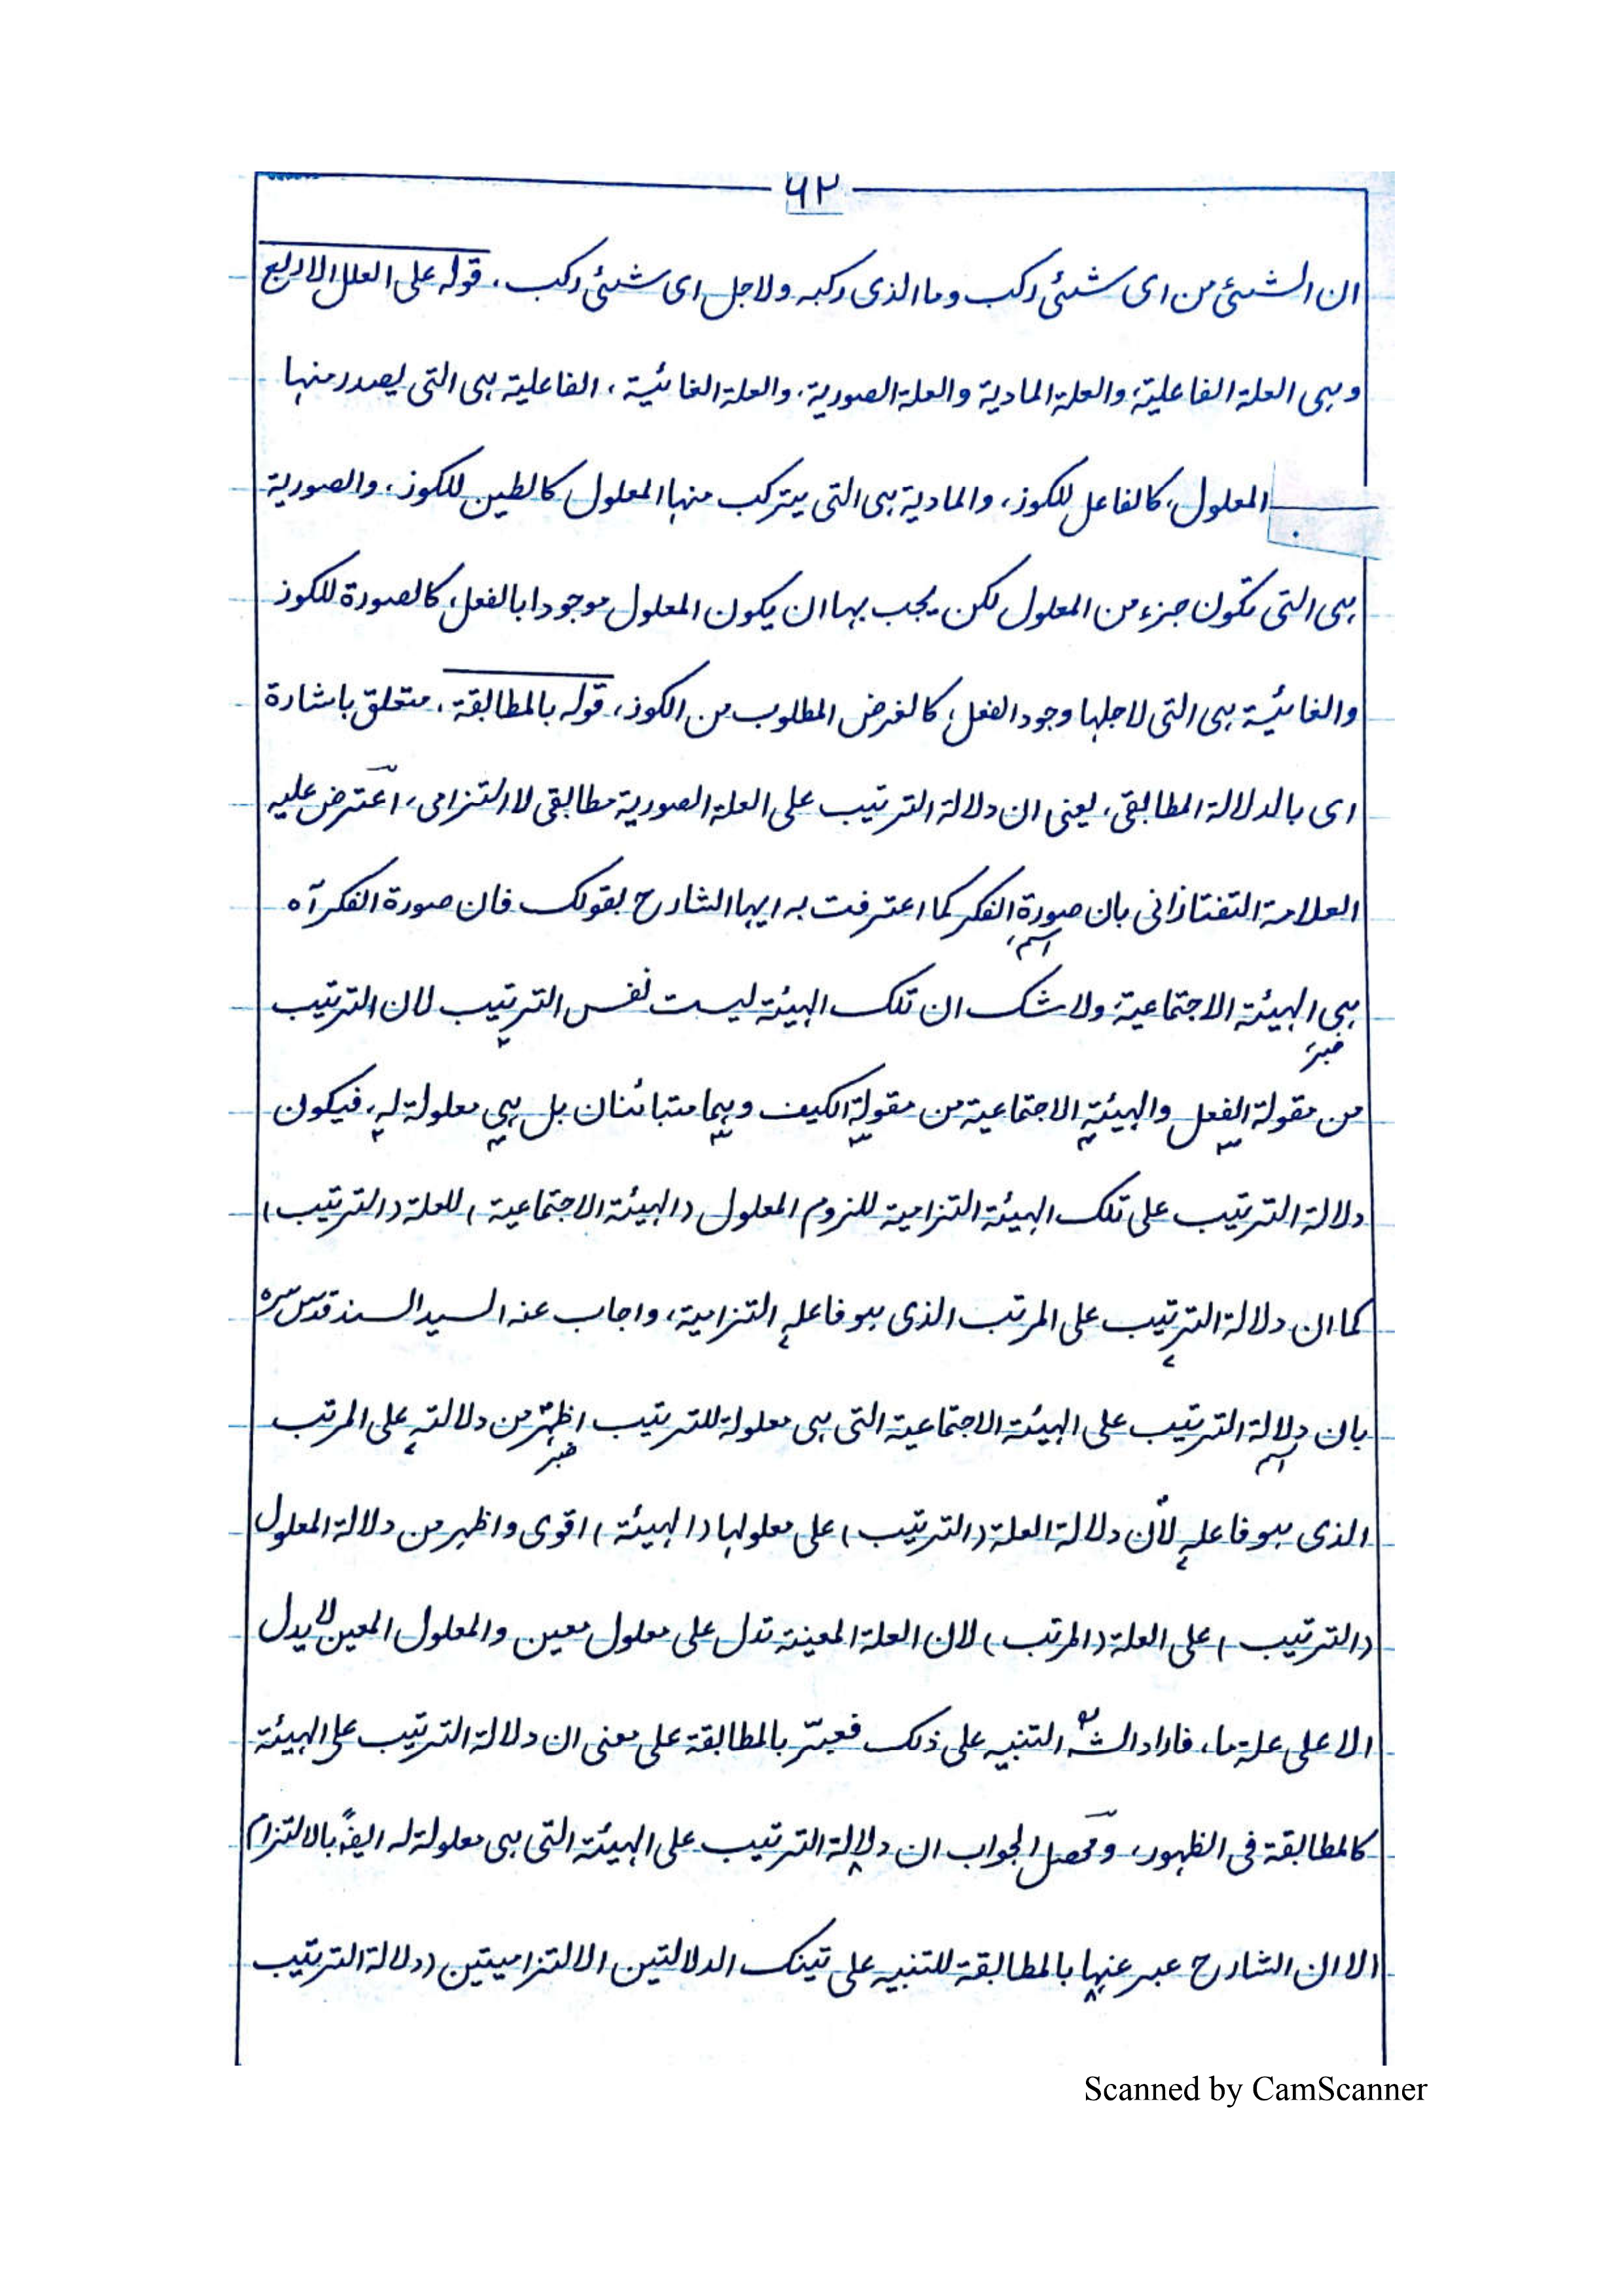 ٦٢
ان الشئ من اى شئ ركب وما الذى ركبه ولاجل اى شئ ركب. قوله على العلل الاربع
وهى العلة الفاعلية، والعلة المادية والعلة الصورية، والعلة الغائية، الفاعلية هى التى يصدر منها
المعلول، كالفاعل للكوز، والمادية هى التى يتركب منها المعلول كالطين للكوز، والصورية
هى التى تكون جزء من المعلول لكن يجب بها ان يكون المعلول موجودا بالفعل، كالصورة للكوز
والغائية هى التى لاجلها وجود الفعل، كالغرض المطلوب من الكوز، قوله بالمطابقة، متعلق باشارة
اى بالدلالة المطابقى، يعنى ان دلالة الترتيب على العلة الصورية مطابقى لا التزامى، اعترض عليه
العلامة التفتازانى بان صورة الفكر كما اعترفت به ايها الشارح بقولك فان صورة الفكر آه
اسم
هى الهيئة الاجتماعية ولا شك ان تلك الهيئة ليست نفس الترتيب لان الترتيب
خبر
من مقولة الفعل والهيئة الاجتماعية من مقولة الكيف وهما متبائنان بل هى معلولة له، فيكون
دلالة الترتيب على تلك الهيئة التزامية للزوم المعلول (الهيئة الاجتماعية) للعلة (الترتيب)
كما ان دلالة الترتيب على المرتب الذى هو فاعله التزامية، واجاب عنه السيد السند قدس سره
بان دلالة الترتيب على الهيئة الاجتماعية التى هى معلولة للترتيب اظهر من دلالته على المرتب
اسم خبر
الذى هو فاعله لأن دلالة العلة (الترتيب) على معلولها (الهيئة) اقوى واظهر من دلالة المعلول
(الترتيب) على العلة (المرتب) لان العلة المعينة تدل على معلول معين والمعلول المعين لا يدل
الا على علة ما، فاراد الشه التنبيه على ذلك فعبّر بالمطابقة على معنى ان دلالة الترتيب على الهيئة
كالمطابقة فى الظهور، ومحصل الجواب ان دلالة الترتيب على الهيئة التى هى معلولة له ايضًا بالالتزام
الا ان الشارح عبر عنها بالمطابقة للتنبيه على تينك الدلالتين الالتزاميتين (دلالة الترتيب
Scanned by CamScanner